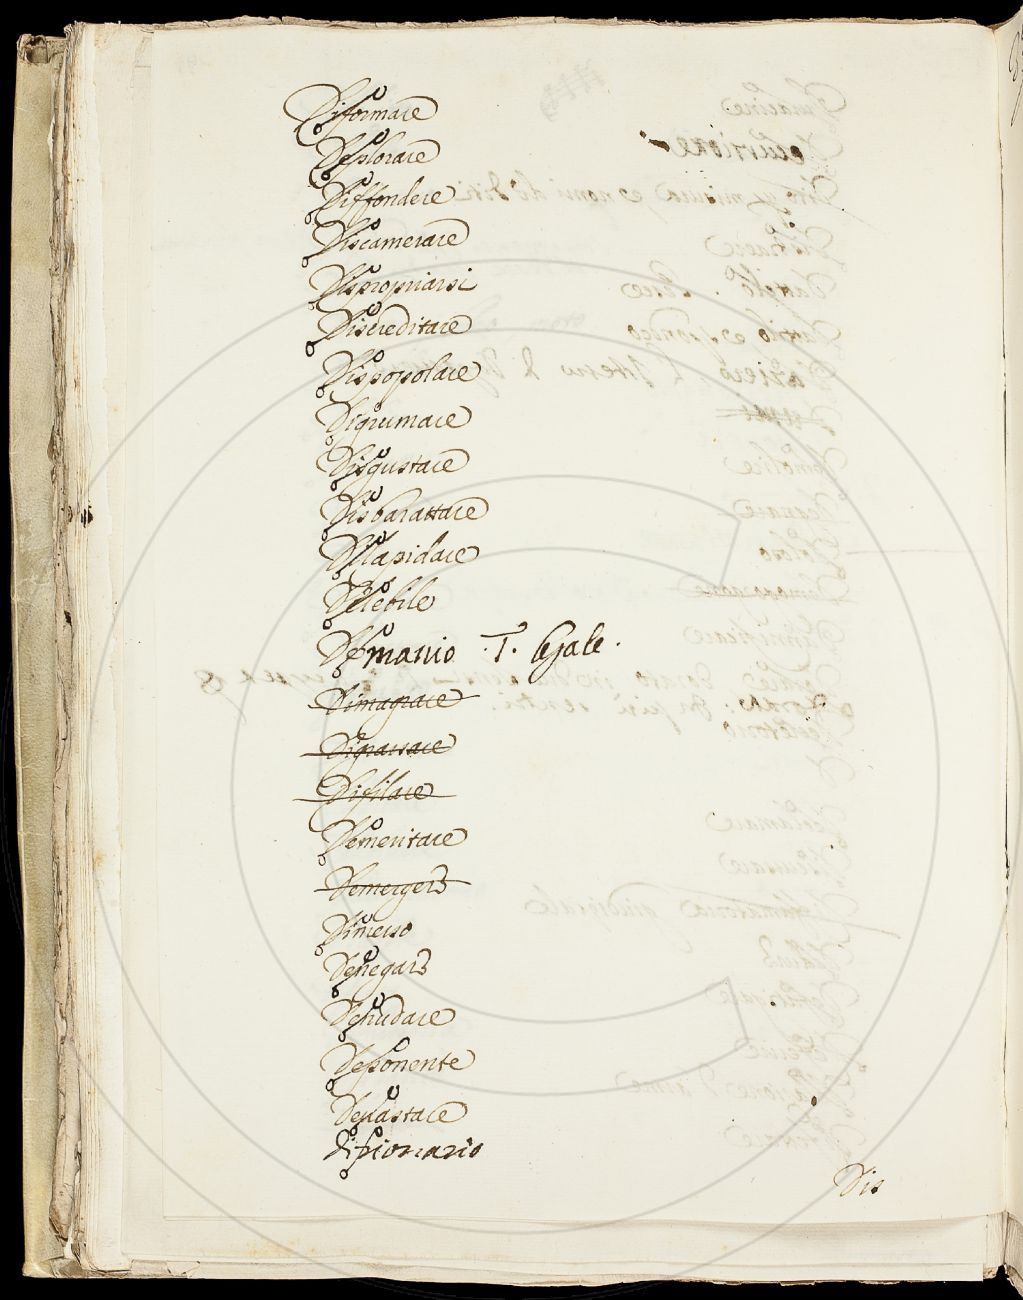 Diformare
Deplorare
Diffondere
Discamerare
Dispropriarsi
Discreditare
Dispopolare
Digrumare
Disgustare
Disbarattare
Dilapidare
Delebile
Demanio . T. legale .
Dimagrare
Digrassare
Difilare
Demeritare
Demergers
Dimerso
Denegars
Denudare
Deponente
Devastare
difionario
Dis